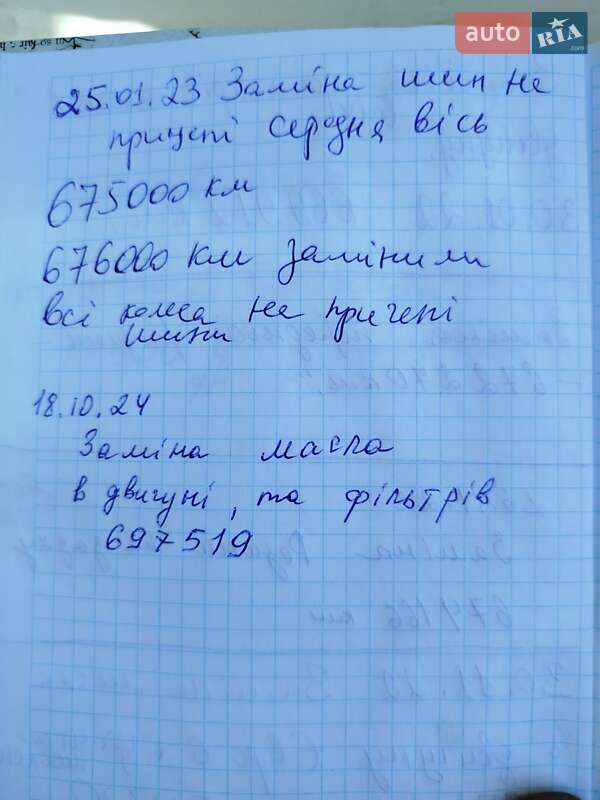 auto RIA.com
25.01.23 Заміна шин на
прицепі середня вісь
675000 км
676000 км замінили
всі колеса на причепі
шини
18.10.24
Заміна масла
в двигуні, та фільтрів
697519